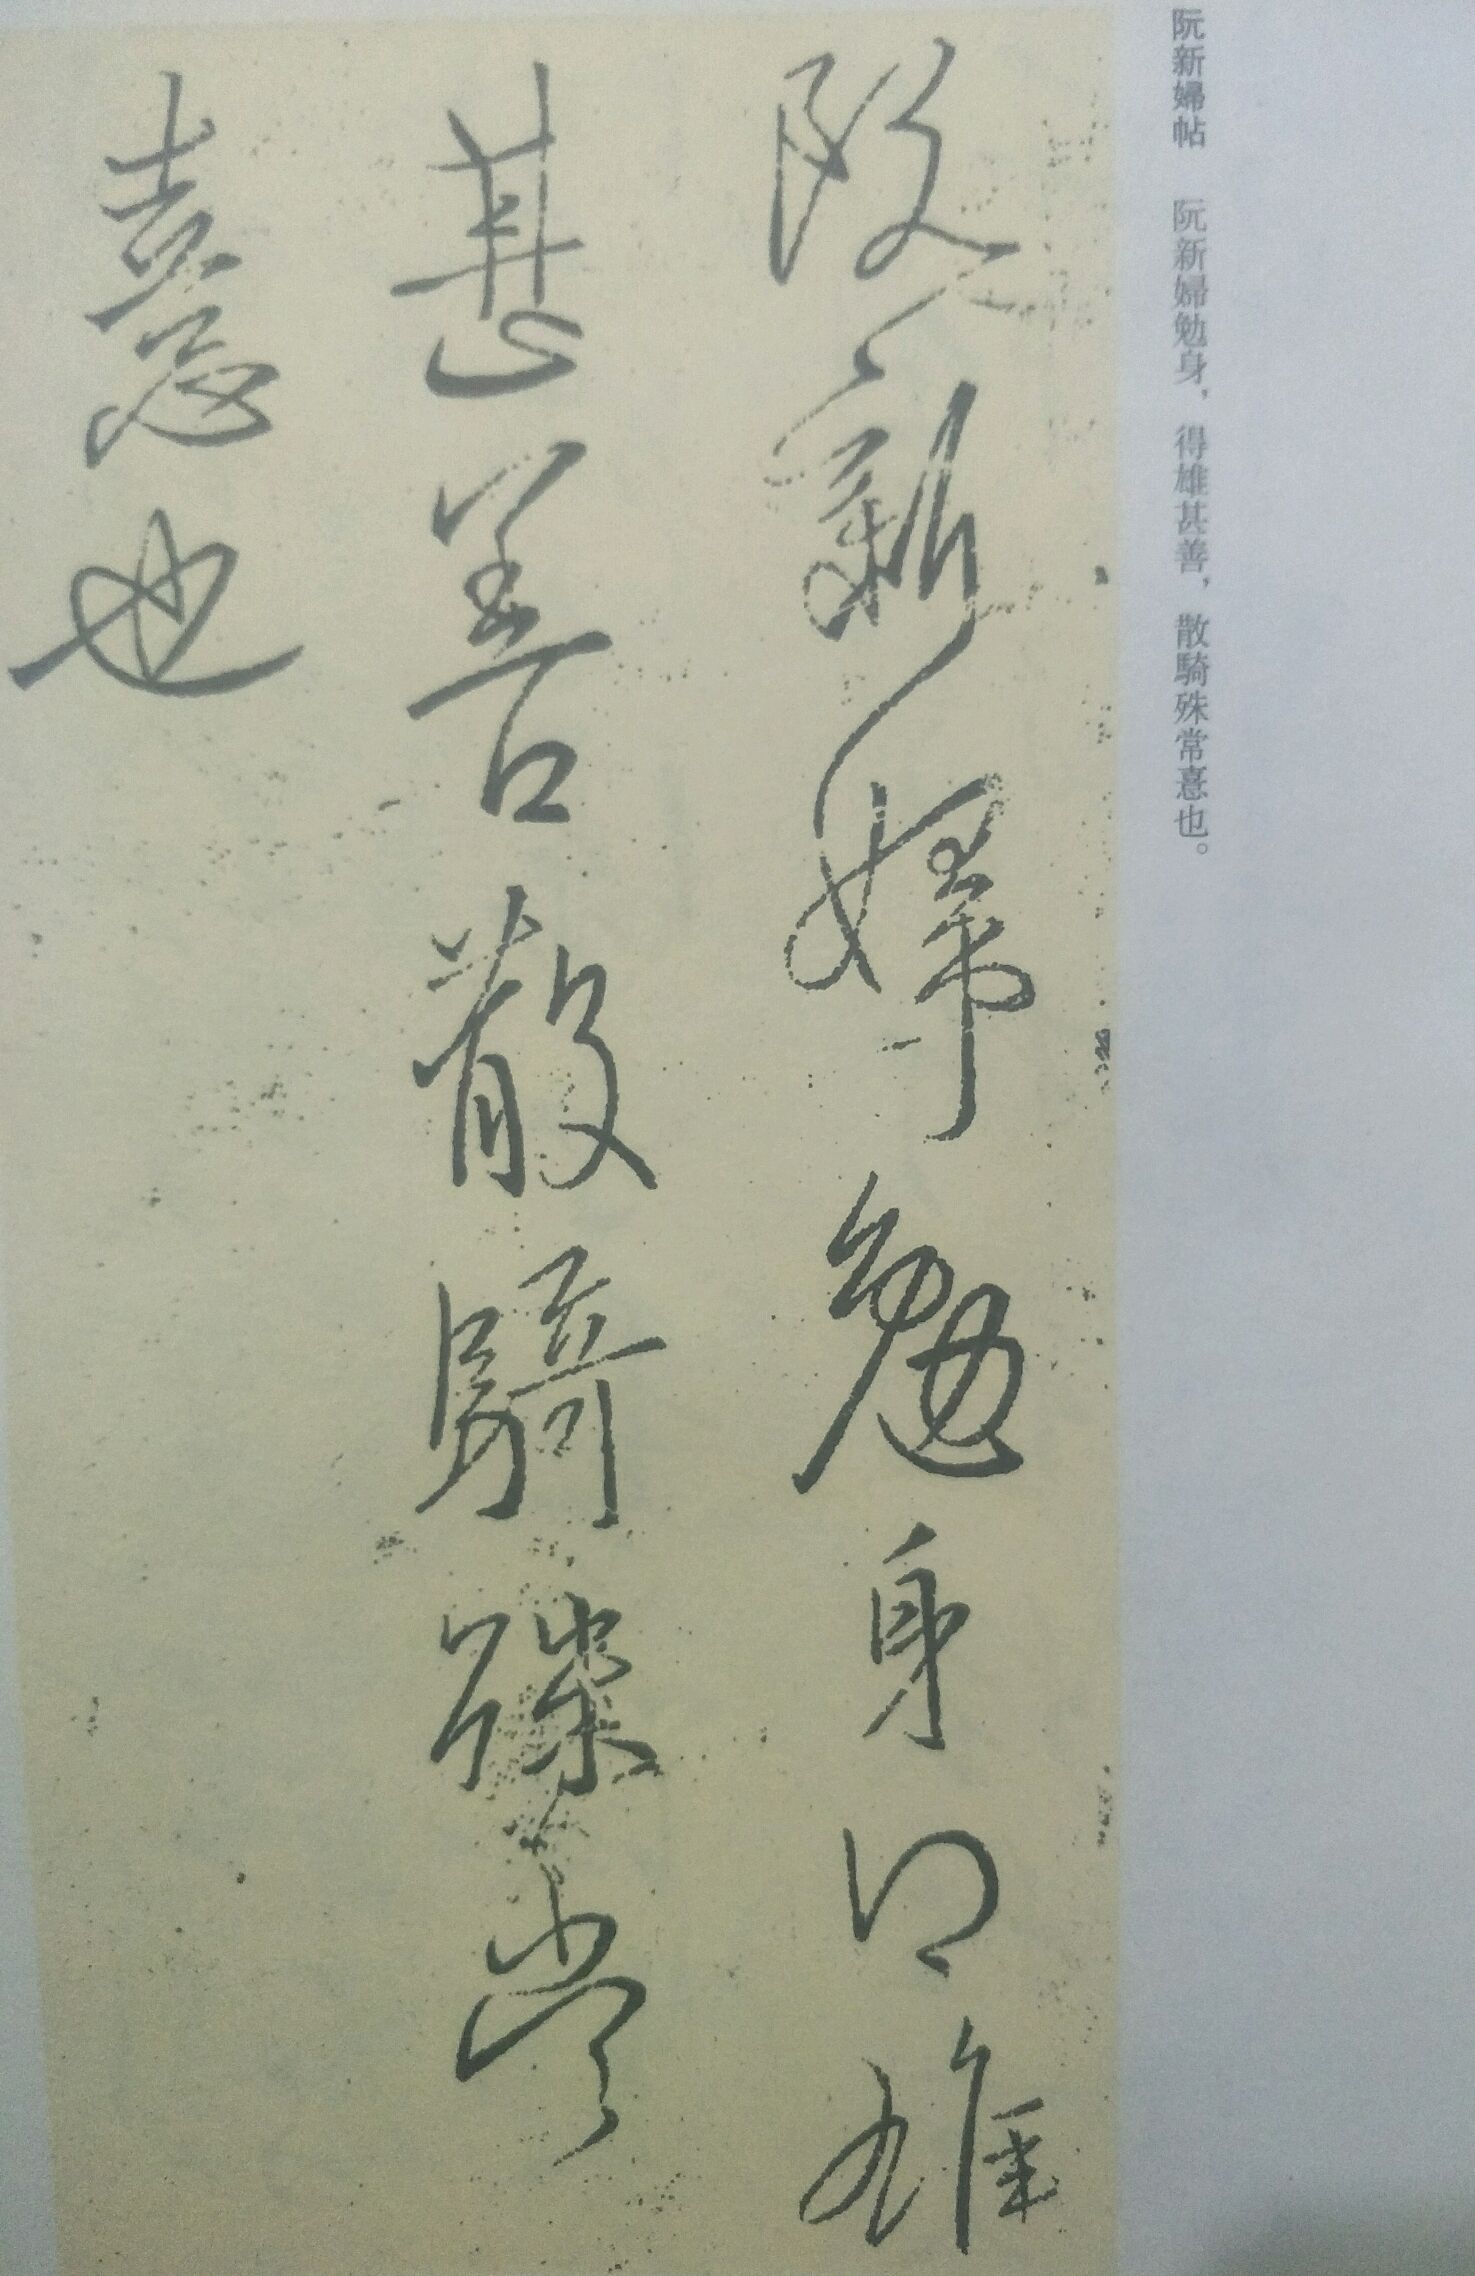 阮新婦帖　阮新婦勉身，得雄甚善，散騎殊常憙也。
阮新婦勉身得雄
甚善散騎殊常
憙也